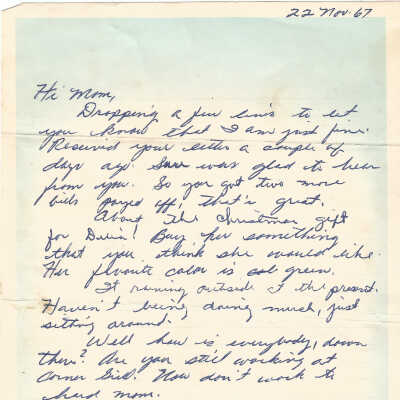 22 Nov. 67
Hi Mom,
Dropping a few lin's to let
you know that I am just fine.
Receved your letter a couple of
days ago. Sure was glad to hear
from you. So you got two more
bills payed off, that's great.
About The Christmas gift
for! Buy her something
that you think she would like.
Her favorite color is green.
It raining outside at the present.
Haven't being doing much, just
sitting around.
Well how is everybody, down
there? Are you still working at
Corner Grill. Now don't work to
hard mom.